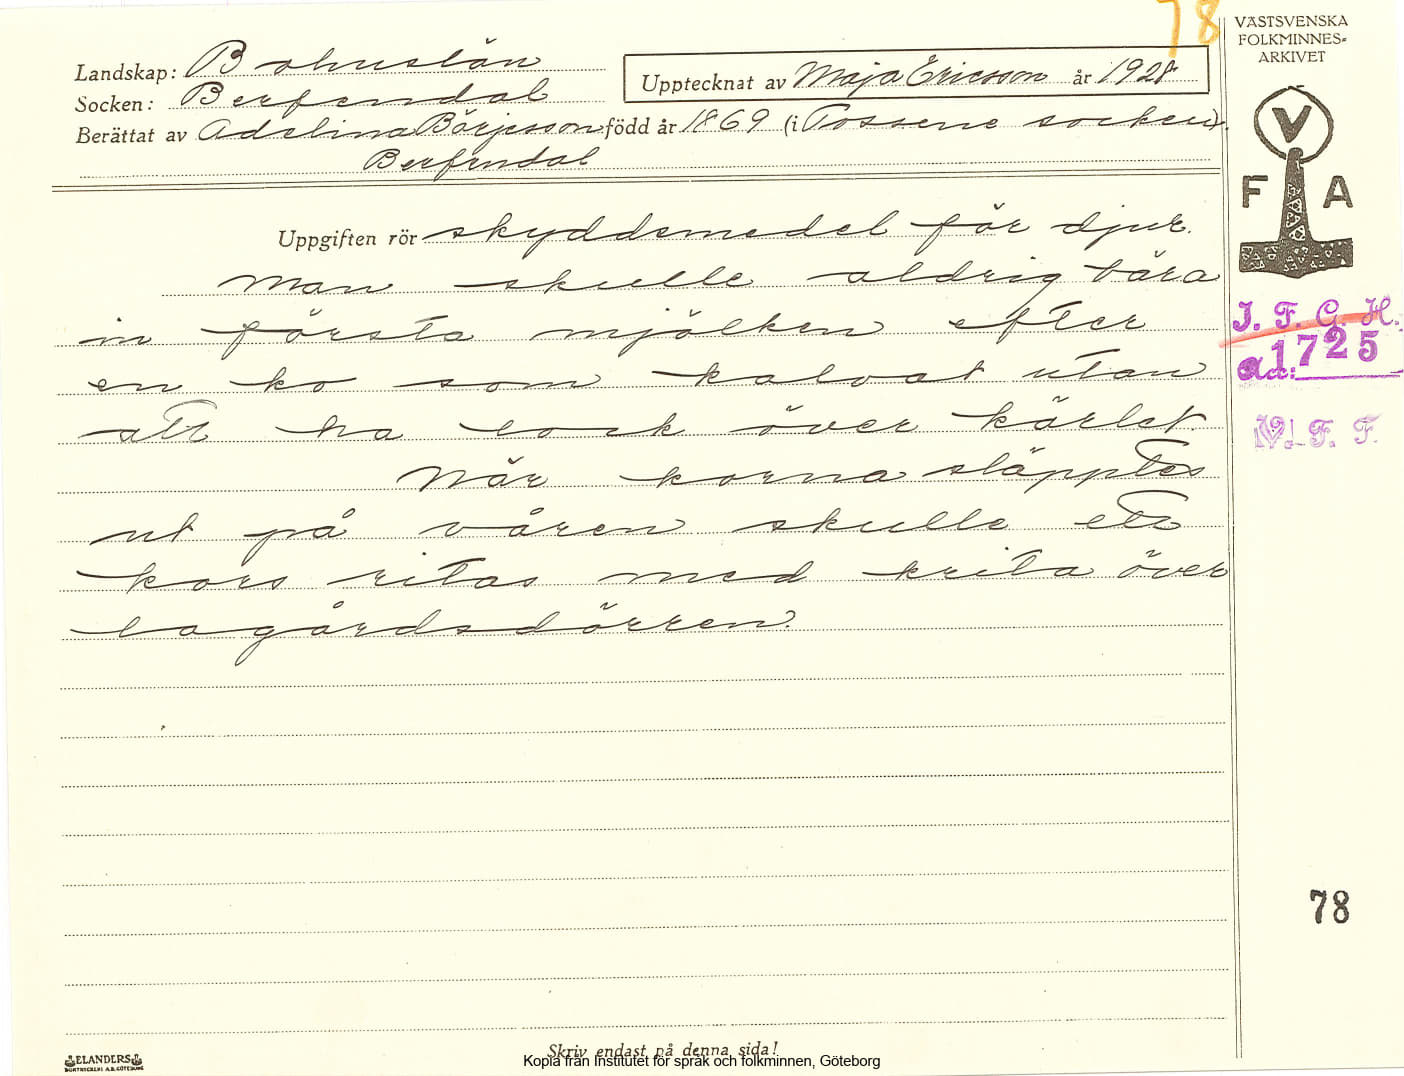 78
VÄSTSVENSKA
FOLKMINNES-
ARKIVET
Landskap: Bohuslän
Upptecknat av Maja Ericsson år 1928
Socken: Berfendal
Berättat av Adelina Börjesson född år 1869 (i Tossene socken).
Berfendal
V
F A
Uppgiften rör skyddsmedel för djur.
Man skulle aldrig bära
in första mjölken efter
en ko som kalvat utan
att ha lock över kärlet.
När korna släpptes
ut på våren skulle ett
kors ritas med krita över
lagårdsdörren.
I. F. G. H.
1725
V. F. F.
78
Skriv endast på denna sida!
ELANDERS
BOKTRYCKERI A.B. GÖTEBORG
Kopia från Institutet för språk och folkminnen, Göteborg